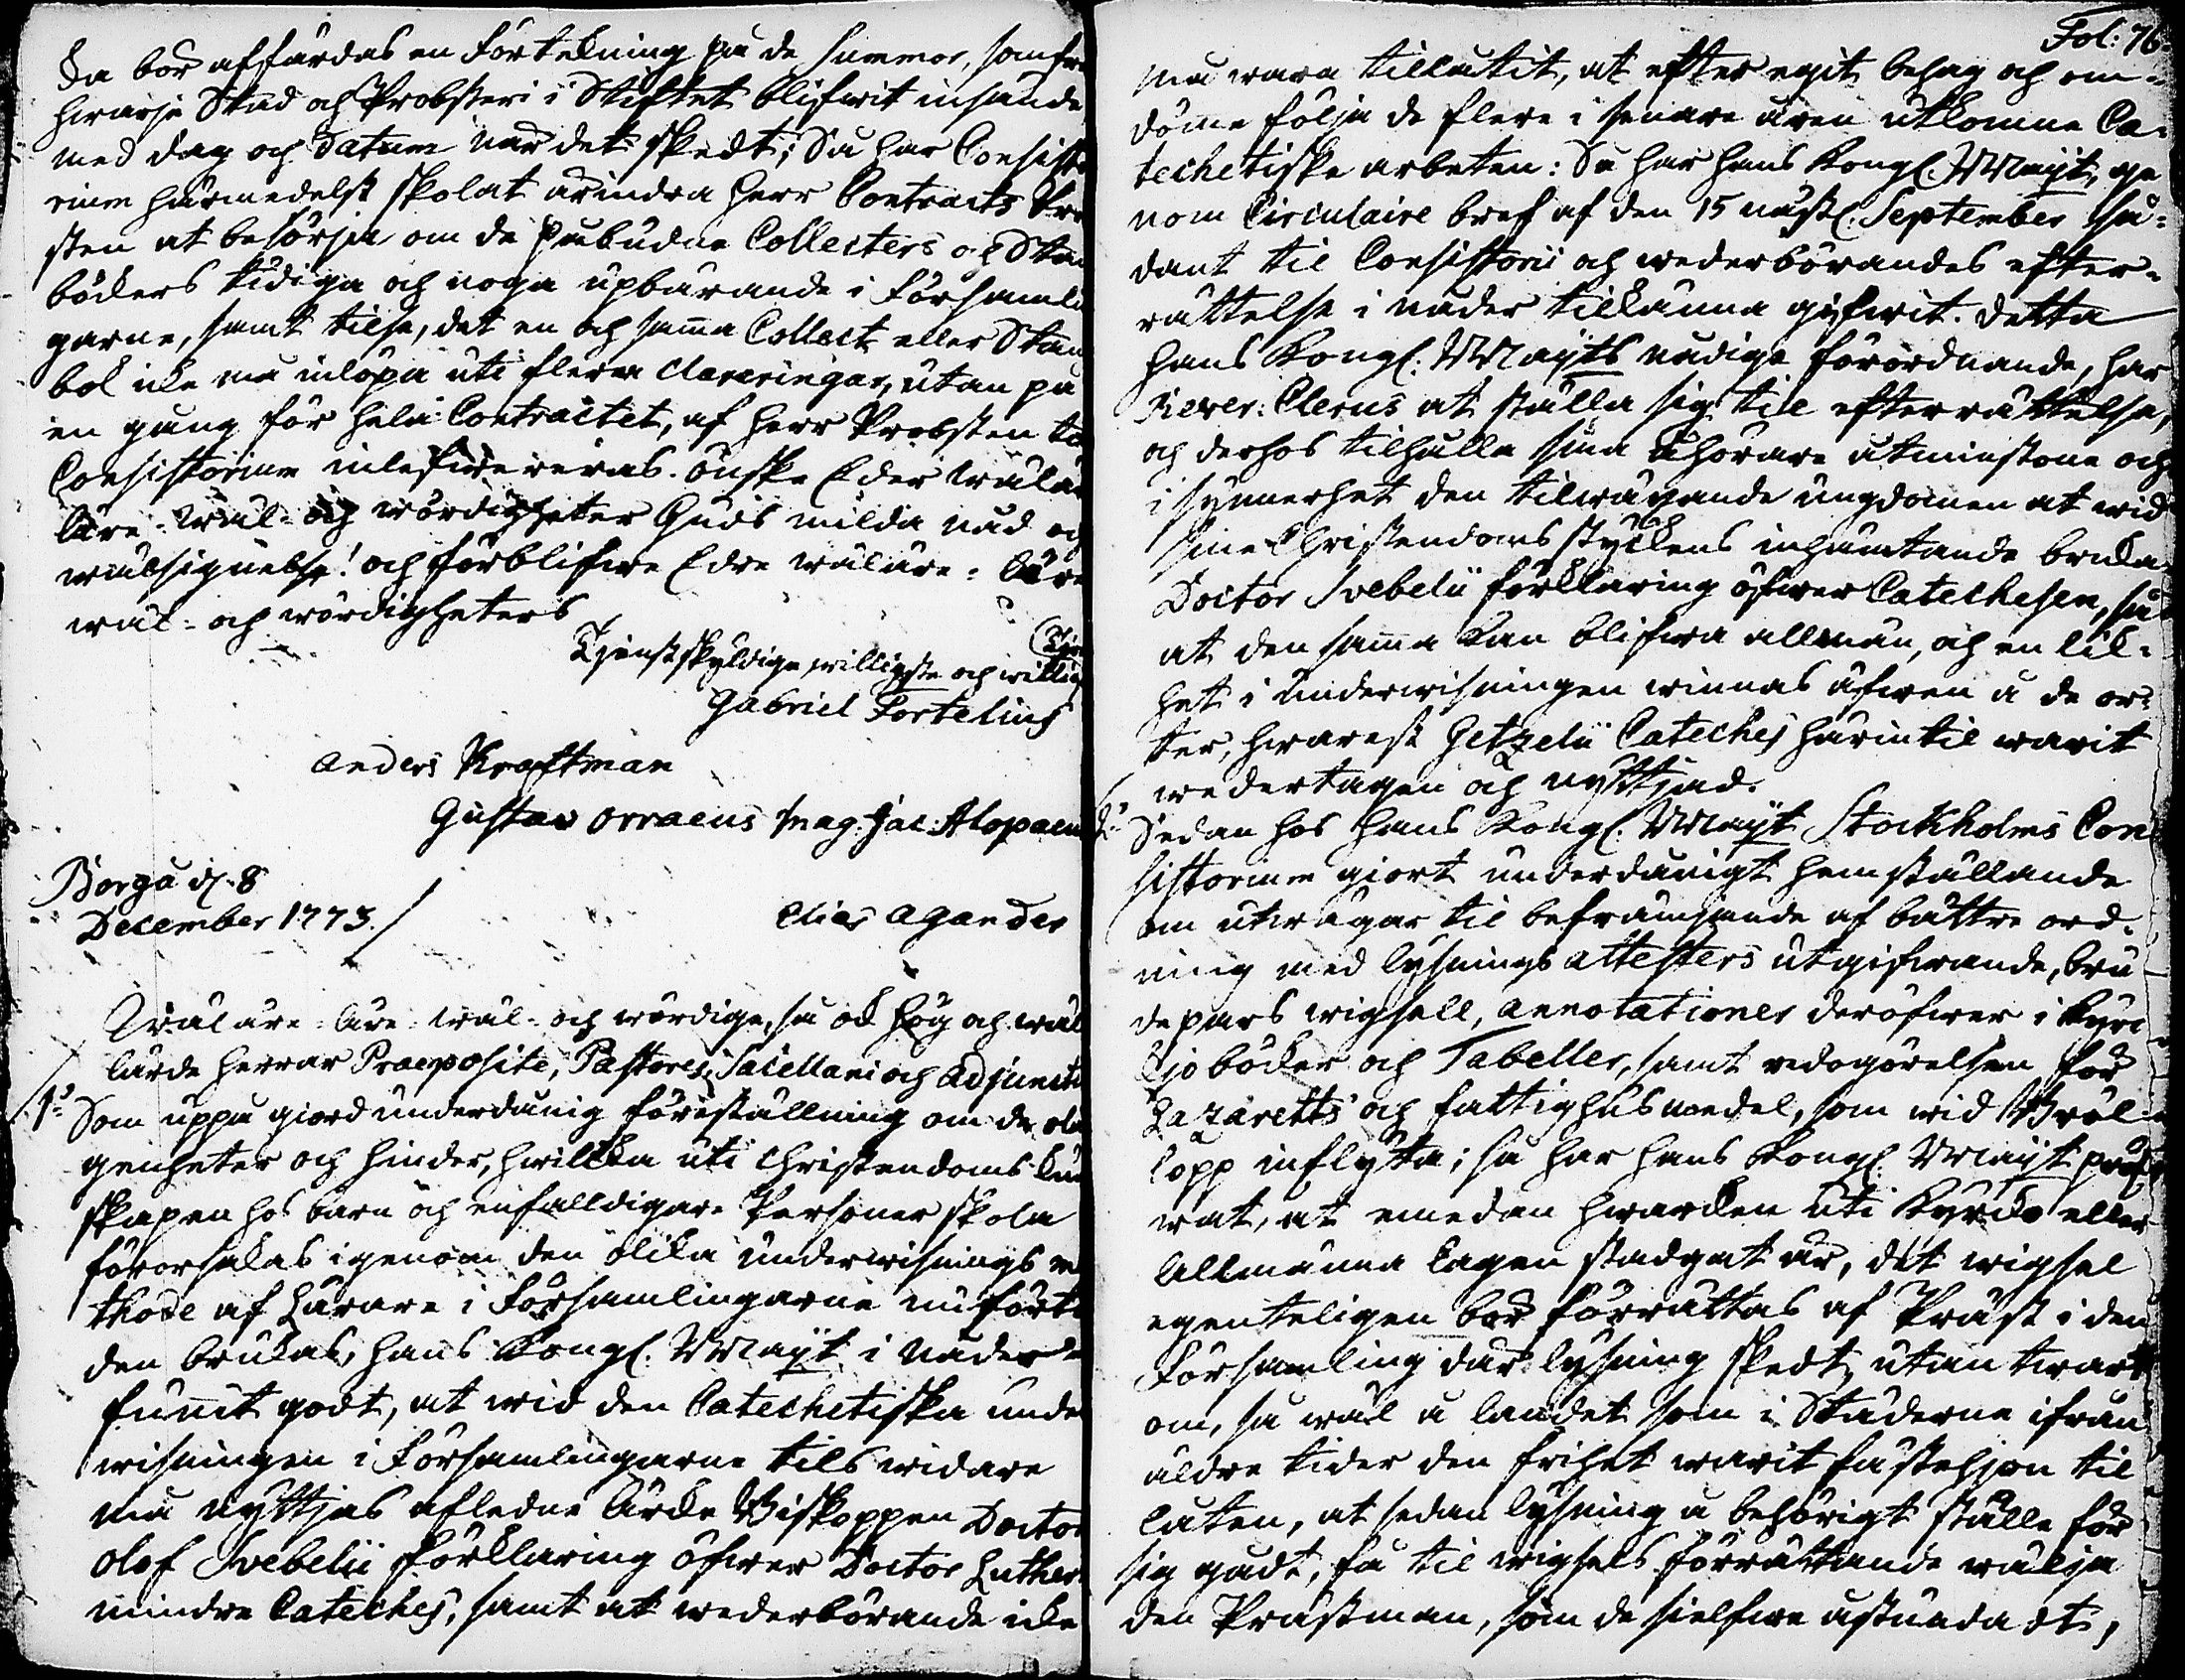 da bör affärdas en förtekning på de summor, som frå
hwarje Stad och Probsteri i Stiftet blifwit insände
med dag och datum när det skedt; Så har Consisto
rium härmedelst skolat ärindra Herr Contracts Pro
sten at besörja om de påbudne Collecters och Stam
böckers tidiga och noga upbärande i Församlin
garne, samt tilse, det en och sama Collect eller Stam
bok icke må inlöpa uti flera clareringar, utan på
en gång för hela Contractet, af Herr Probsten til
Consistorium inlefwereras. Önske Eder Wälä
läre- Wäl- och wördigheter Guds milda nåd och
wälsignelse! och förblifwe Edre wäläre- läre
wäl- och wördigheters
Tjenstskyldige, willigste och willig
Gabriel Fortelius
Anders Kraftman
Gustav Orraeus Mag: Jac: Alopaeus
Borgå d. 8
December 1773.
Elias Agander
Wäläre- läre- wäl- och wördige, så ock Hög och wäl
lärde Herrar Praepositi, Pastores, Sacellani och Adjuncti
1:o Som uppå giord underdånig föreställning om de olä
genheter och hinder, hwilka uti Christendoms kun
skapen hos barn och enfalldigare Personer skola
förorsakas igenom den olika underwisnings me
thode af Lärare i Församlingarne nu förti
den brukas, Hans Kongl. Maÿt i Nåder
funnit godt, at wid den Catechetiska under
wisningen i Församlingarne tils widare
må nyttjas afledne Ärke Biskoppen Doctor
Olof Svebelii förklaring öfwer Doctor Lutheri
mindre Cateches, samt at wederbörande icke
Fol: 76.
må wara tillåtit, at efter egit behag och om-
döme följa de flere i senare åren utkomne Ca-
techetiske arbeten: Så har Hans Kongl. Maÿt, ge
nom Circulaire bref af den 15 nästl. September så-
dant til Consistorii och wederbörandes efter-
rättelse i nåder tillkänna gifwit. Detta
Hans Kongl. Maÿts nådige förordnande, har
Rever: Clerus at ställa sig til efterrättelse,
och derhos tilhålla sina åhörare åtminstone och
i synnerhet den tilwäxande ungdomen at wid
sine Christendoms styckens inhämtande bruka
Doctor Svebelii förklaring öfwer Catechesen, så
at den sama kan blifwa allmän, och en lik-
het i Underwisningen winnas äfwen å de or-
ter, hwarest Getzelii Cateches härintil warit
wedertagen och nyttjad.
2:o Sedan hos Hans Kongl. Maÿt Stockholms Con
sistorium giort underdånigt hemställande
om utwägar til befrämjande af bättre ord-
ning med lysnings attesters utgifwande, bru
depars wigsell, annotationer deröfwer i Kyrc
kjo böcker och Tabeller, samt redogörelsen för
Lazaretts och fattighus medel, som wid Bröl-
lopp inflyta; så har Hans Kongl. Maÿt pröf-
wat, at emedan hwarken uti Kyrko eller
Allmänna Lagen stadgat är, det wigsel
egenteligen bör förrättas af Präst i den
Församling där lysning skedt, utan twärt
om, så wäl å landet som i Städerna ifrån
äldre tider den frihet warit fästehjon til
låten, at sedan lysning å behörigt ställe för
sig gådt, få til wigsels förrättande wälja
den Prästman, som de sielfwe åstunda dt,